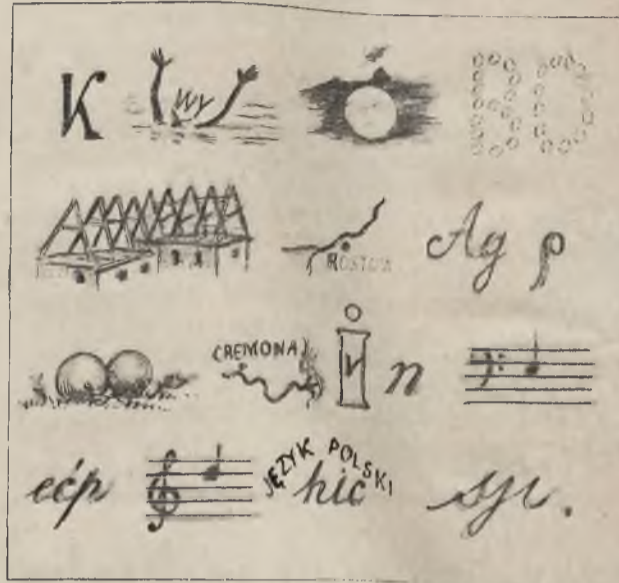 K wy BO
ROSTOW Ag p
CREMONA i n
ećp JĘZYK POLSKI hic